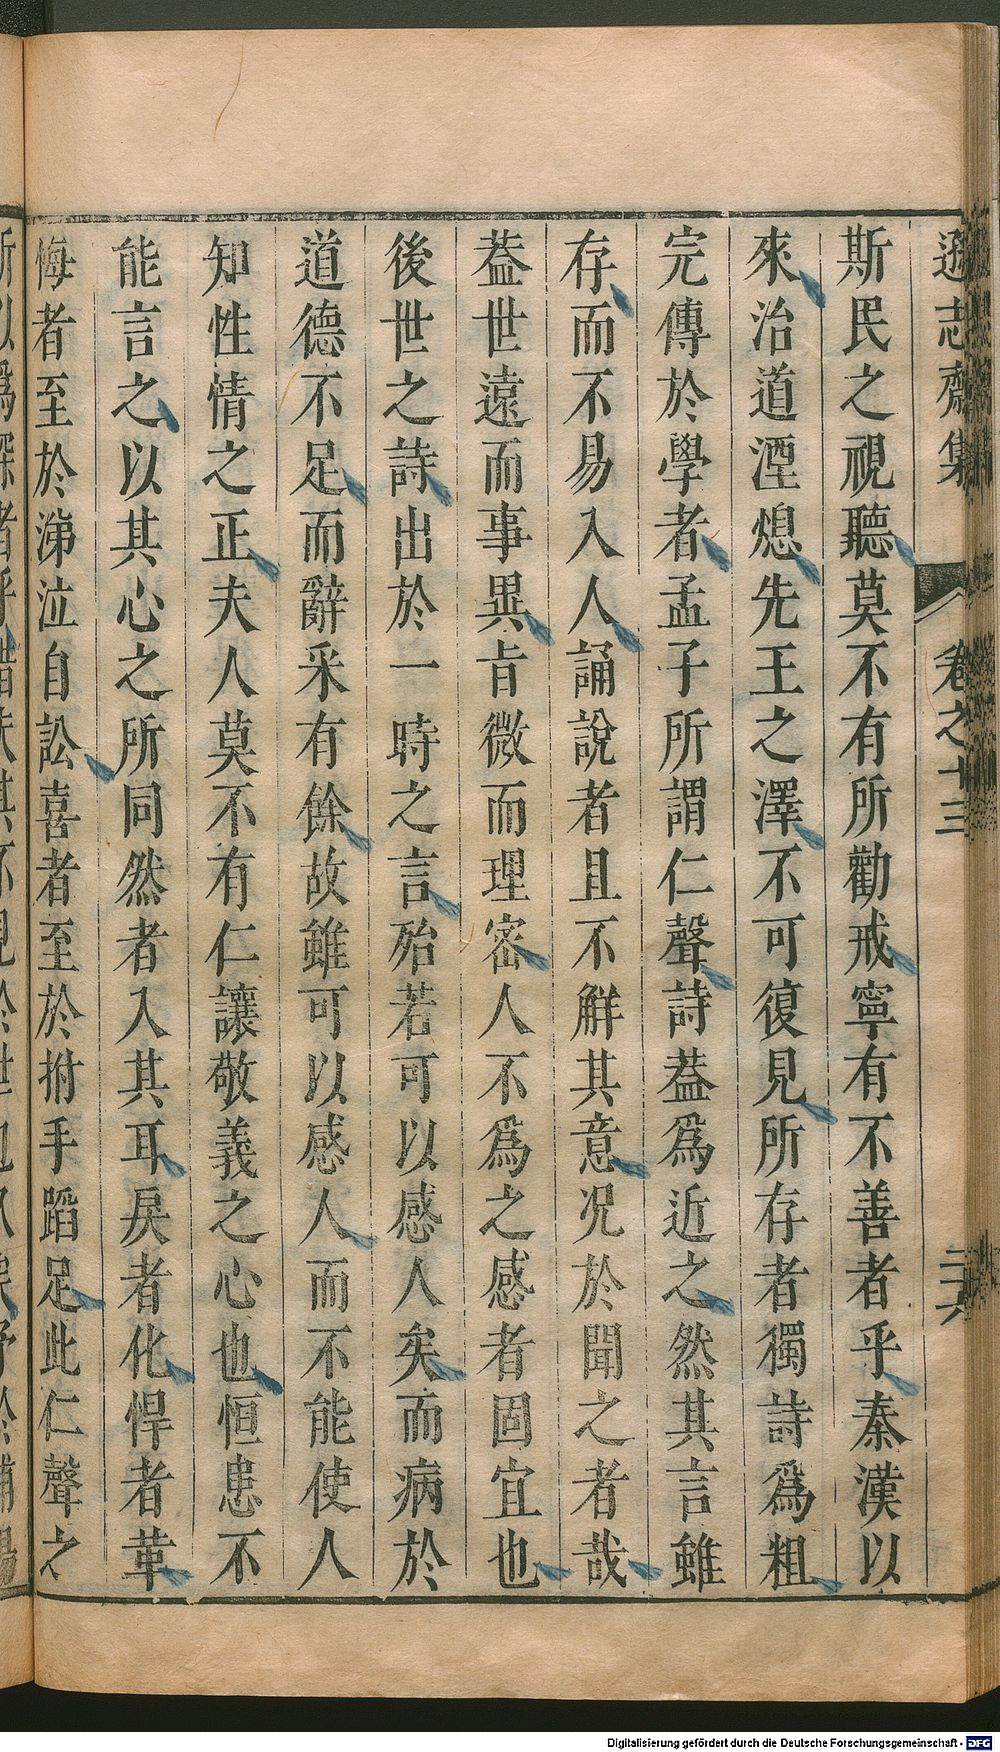 遜志齋集 卷之十三 二六
斯民之視聽莫不有所勸戒寧有不善者乎秦漢以
來治道湮熄先王之澤不可復見所存者獨詩爲粗
完傳於學者孟子所謂仁聲詩葢爲近之然其言雖
存而不易入人誦說者且不觧其意况於聞之者哉
葢世遠而事異㫖微而理密人不爲之感者固宜也
後世之詩出於一時之言殆若可以感人矣而病於
道德不足而辭采有餘故雖可以感人而不能使人
知性情之正夫人莫不有仁讓敬義之心也恒患不
能言之以其心之所同然者入其耳戾者化悍者革
悔者至於涕泣自訟喜者至於拊手蹈足此仁聲之
Digitalisierung gefördert durch die Deutsche Forschungsgemeinschaft - DFG